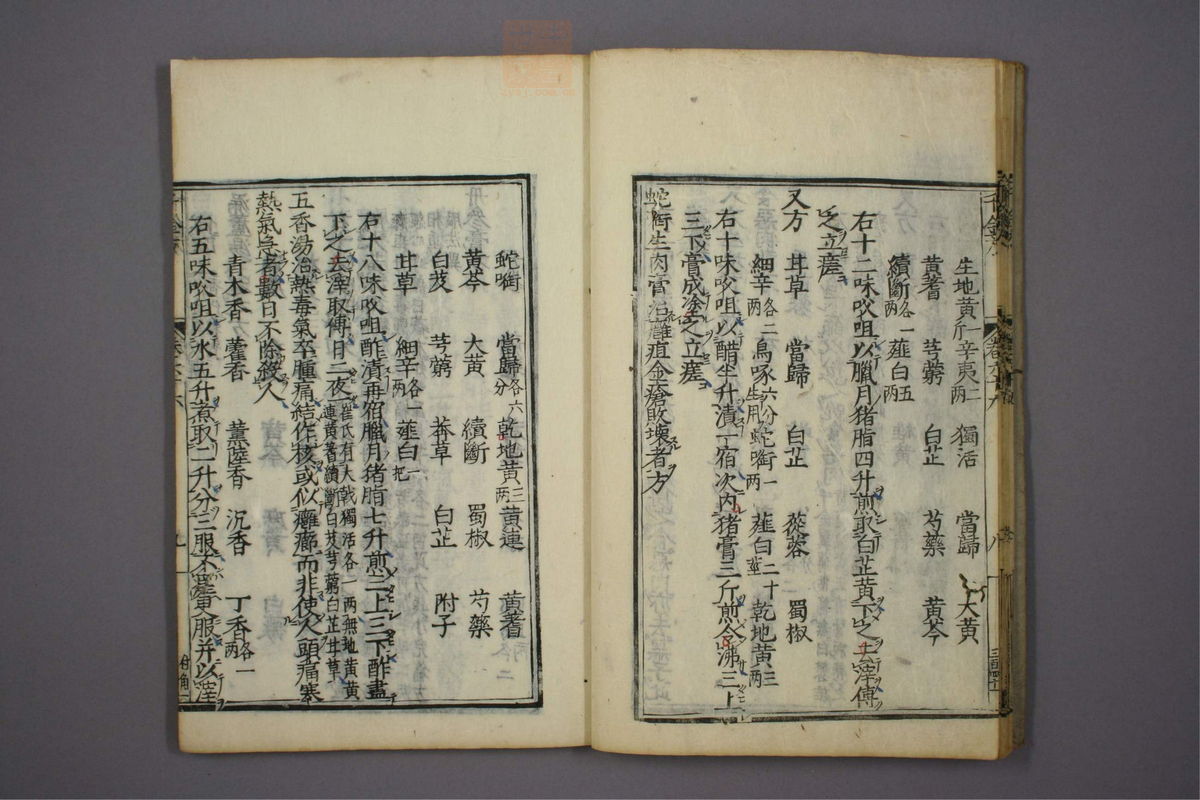 生地黃一斤 辛夷二兩 獨活 當歸 大黃
黃耆 芎藭 白芷 芍藥 黃芩
續斷各一兩 薤白五兩
右十二味㕮咀以臘月猪脂四升煎取白芷黃下之去滓傅
之立瘥
又方 甘草 當歸 白芷 蓯蓉 蜀椒
細辛各二兩 烏喙六分生用 蛇銜一兩 薤白二十莖 乾地黃三兩
右十味㕮咀以醋半升漬一宿次内猪膏三斤煎令沸三上
三下膏成塗之立瘥
蛇銜生肉膏治癰疽金瘡敗壞者方
蛇銜 當歸各六分 乾地黃三兩 黃連 黃耆
黃芩 大黃 續斷 蜀椒 芍藥
白芨 芎藭 莽草 白芷 附子
甘草 細辛各一兩 薤白一把
右十八味㕮咀酢漬再宿臘月猪脂七升煎三上三下酢盡
下之去滓取傅日三夜一崔氏有大戟獨活各一兩無地黃黃
連黃耆續斷白芨芎藭白芷甘草
五香湯治熱毒氣卒腫痛結作核或似癰癤而非使人頭痛寒
熱氣急者數日不除殺人
青木香 藿香 薰陸香 沉香 丁香各一兩
右五味㕮咀以水五升煮取二升分三服不瘥更服并以滓